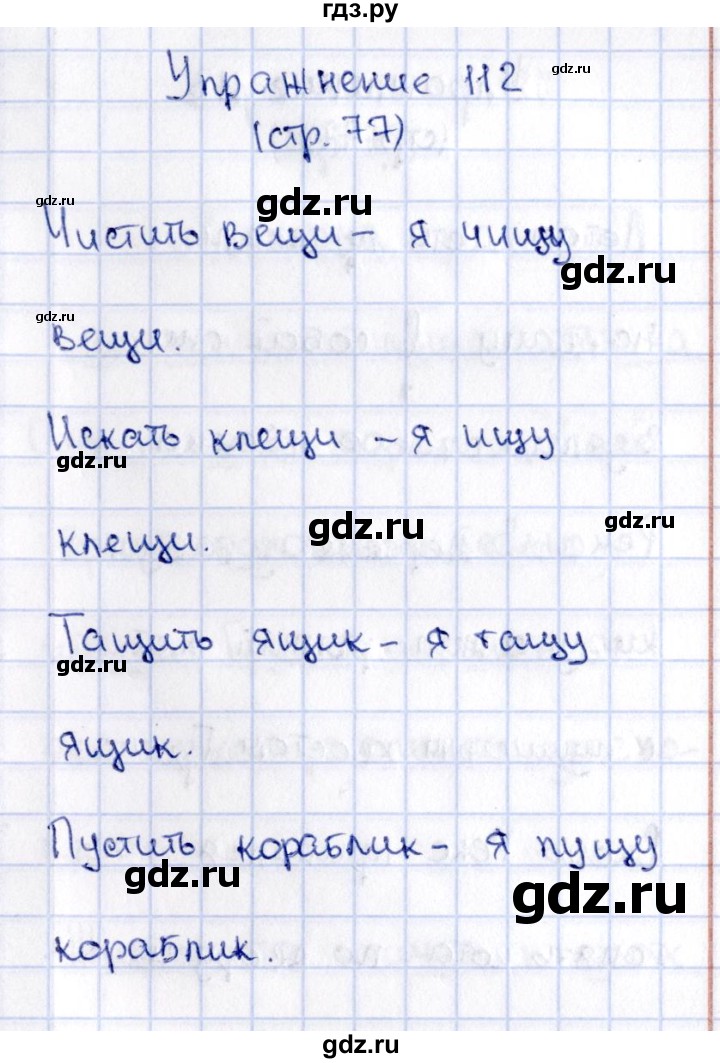 гдз.ру
Упражнение 112
gdz.ru
(стр. 77)
gdz.ru
gdz.ru
Чистить вещи - я чищу
gdz.ru
gdz.ru
вещи.
Искать клещи - я ищу
gdz.ru
gdz.ru
gdz.ru
клещи.
Тащить ящик - я тащу
gdz.ru
ящик.
Пустить кораблик - я пущу
gdz.ru
gdz.ru
кораблик.
gdz.ru